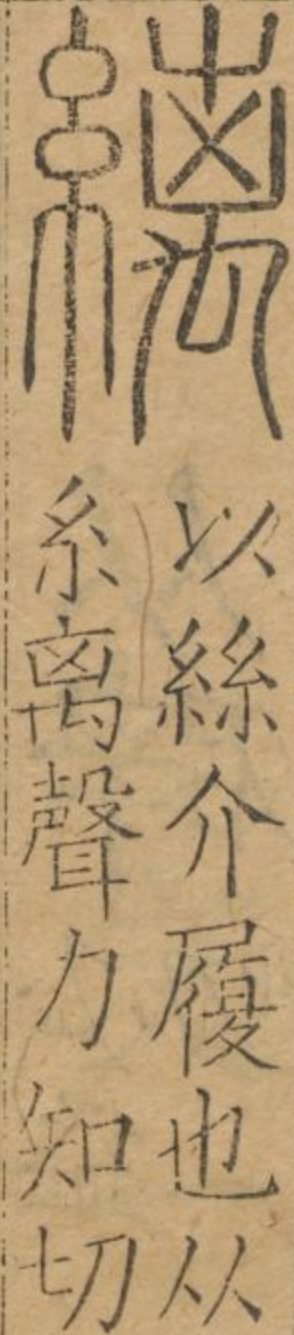 縭
以絲介履也从
糸离聲力知切